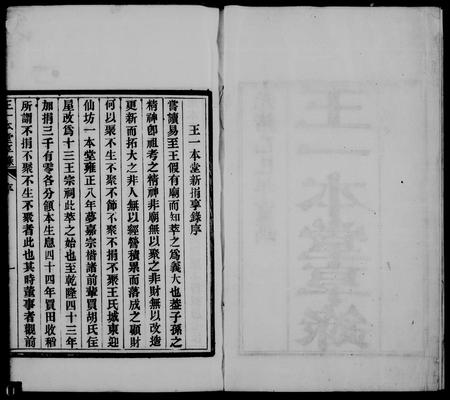 王一本堂新捐享錄序
嘗讀易至王假有廟而知萃之為義大也蓋子孫之
精神卽祖考之精神非廟無以聚之非財無以改造
更新而拓大之非人無以經營積累而落成之顧財
何以聚不生不聚不節不聚不捐不聚王氏城東迎
仙坊一本堂雍正八年夢嘉宗楷諸前輩買胡氏住
屋改為十三王宗祠此萃之始也至乾隆四十三年
加捐三千有零各分領本生息四十四年買田收稻
所謂不捐不聚不生不聚者此也其時董事者觀前
王一本堂享錄
序
一